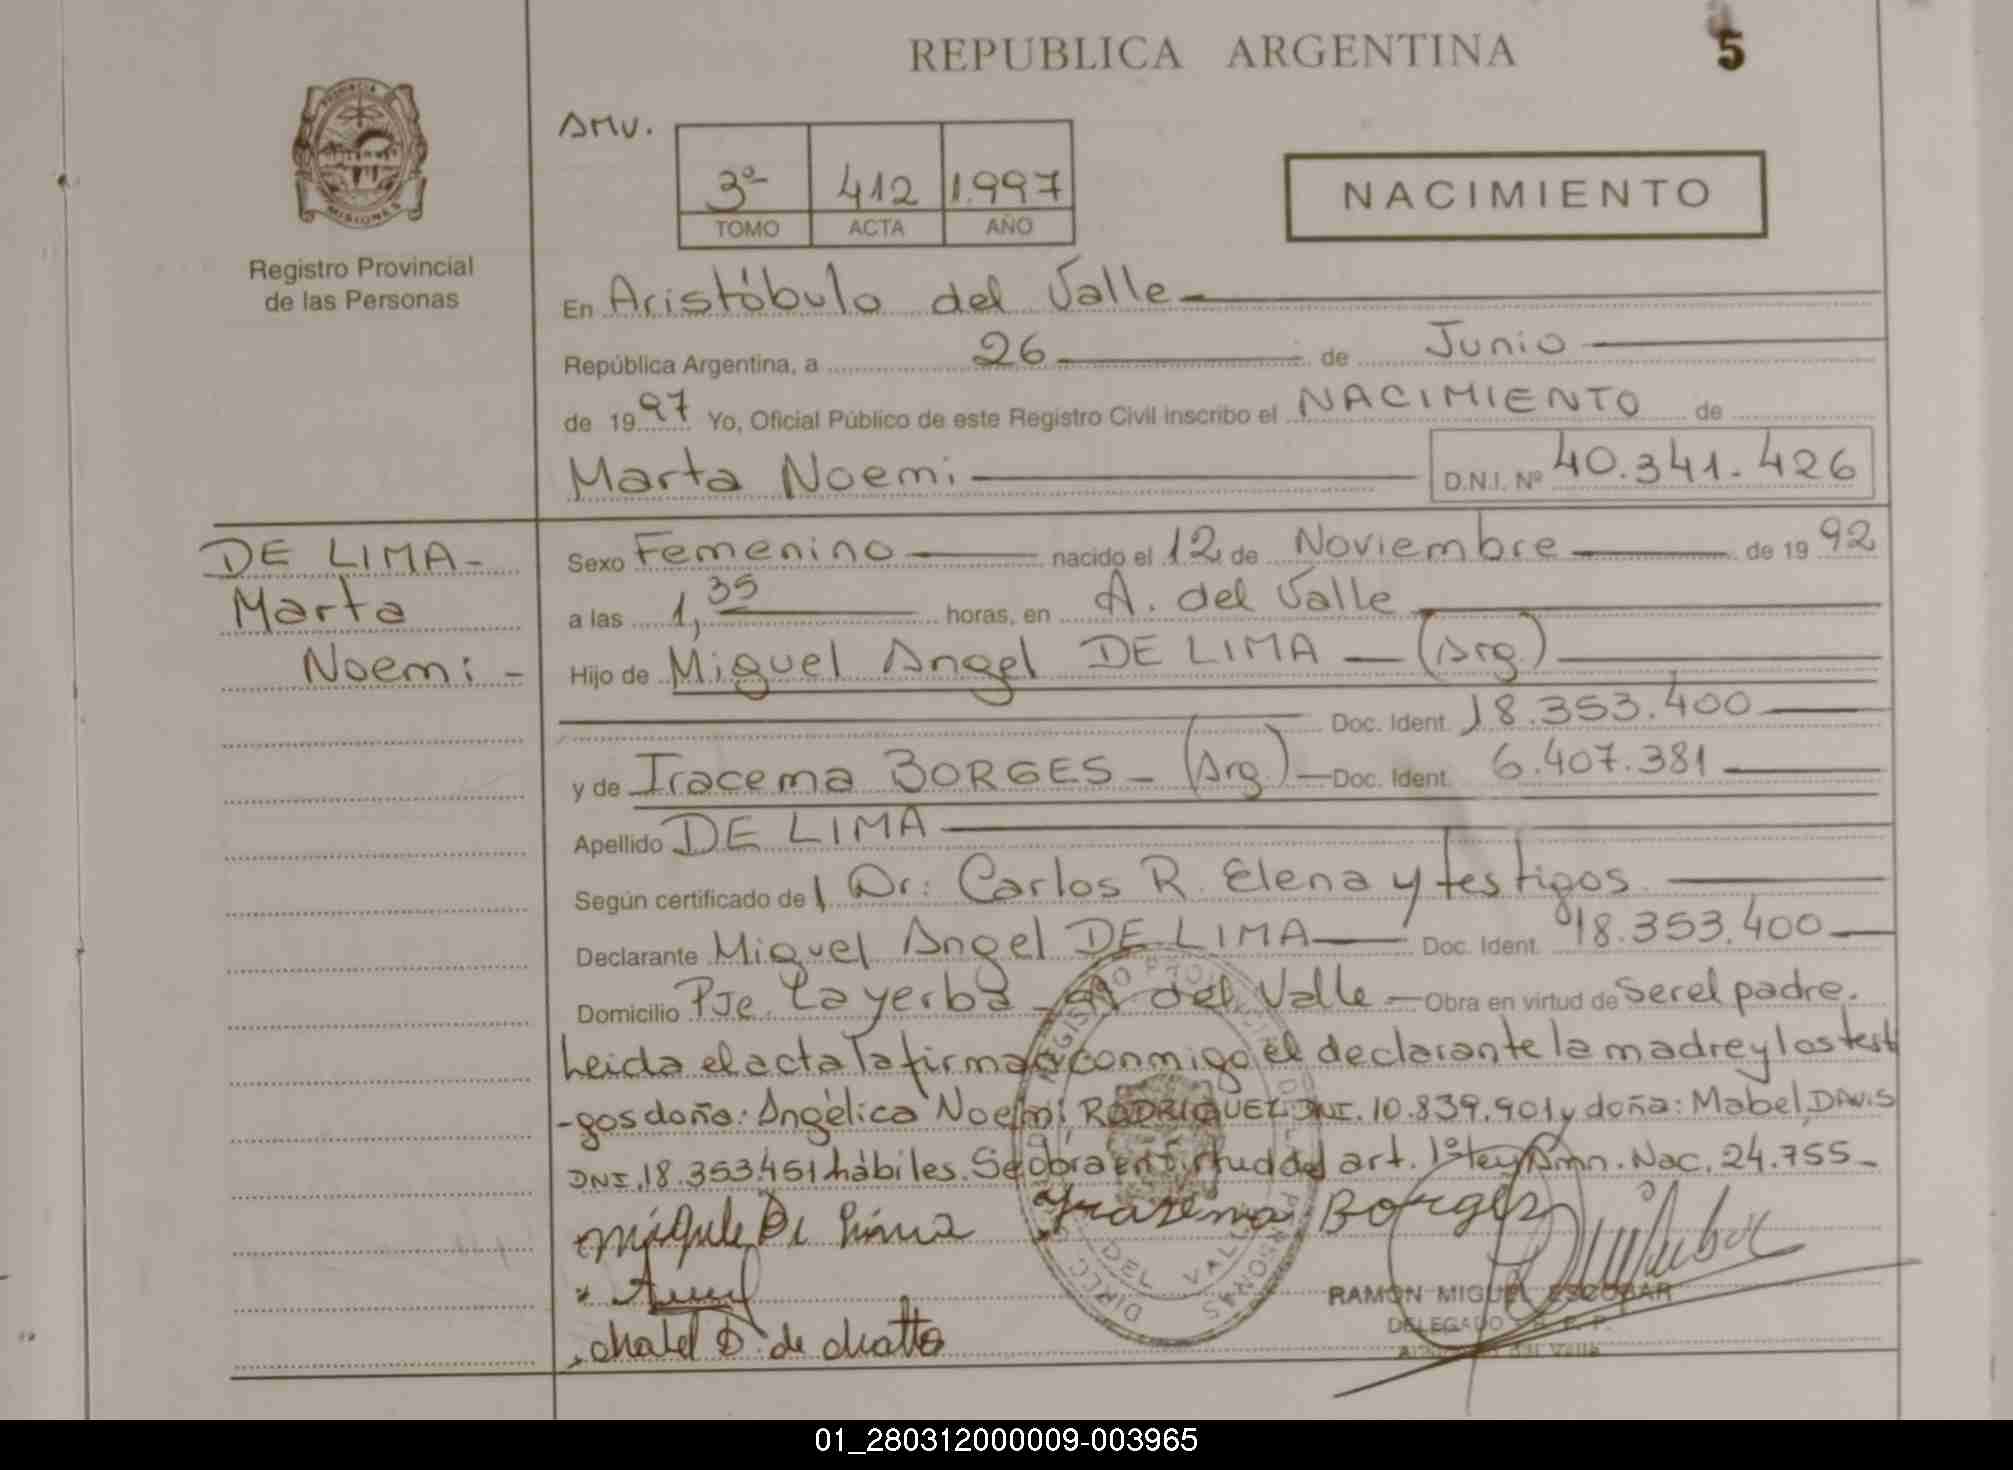 REPUBLICA ARGENTINA
5
PROVINCIA
MISIONES
Registro Provincial
de las Personas
AMV.
3º 412 1.997
TOMO ACTA AÑO
NACIMIENTO
En Aristóbulo del Valle
República Argentina, a 26 de Junio
de 1997 Yo, Oficial Público de este Registro Civil inscribo el NACIMIENTO de
Marta Noemi D.N.I. Nº 40.341.426
DE LIMA-
Marta
Noemi-
Sexo Femenino nacido el 12 de Noviembre de 1992
a las 1,35 horas, en A. del Valle
Hijo de Miguel Angel DE LIMA - (Arg.)
Doc. Ident. 18.353.400
y de Iracema BORGES - (Arg.) - Doc. Ident. 6.407.381
Apellido DE LIMA
Según certificado de Dr: Carlos R. Elena y testigos
Declarante Miguel Angel DE LIMA Doc. Ident. 18.353.400
Domicilio Pje. La yerba - A del Valle - Obra en virtud de Ser el padre.
Leida el acta la firman conmigo el declarante la madre y los testi
-gos doña: Angélica Noemi RODRIGUEZ DNI. 10.839.901 y doña: Mabel DAVIS
DNI. 18.353.451 hábiles. Se obra en virtud del art. 1º Ley Amn. Nac. 24.755-
Borges
RAMON MIGUEL ESCOBAR
DELEGADO R. P. P.
Aristóbulo del Valle
Mabel D. de
DEL VALLE
01_280312000009-003965